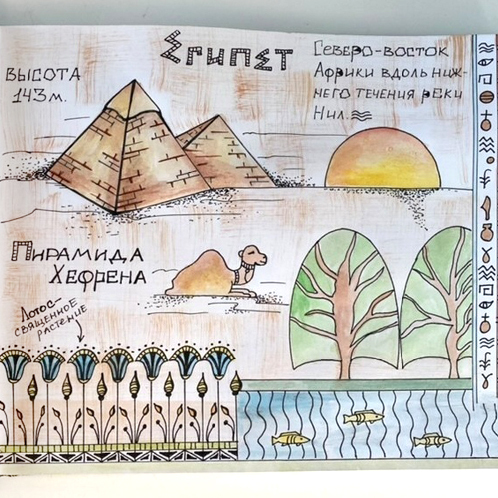 Египет
Высота
143 м.
Северо-восток
Африки вдоль ниж-
него течения реки
Нил.
Пирамида
Хефрена
Лотос-
священное
растение